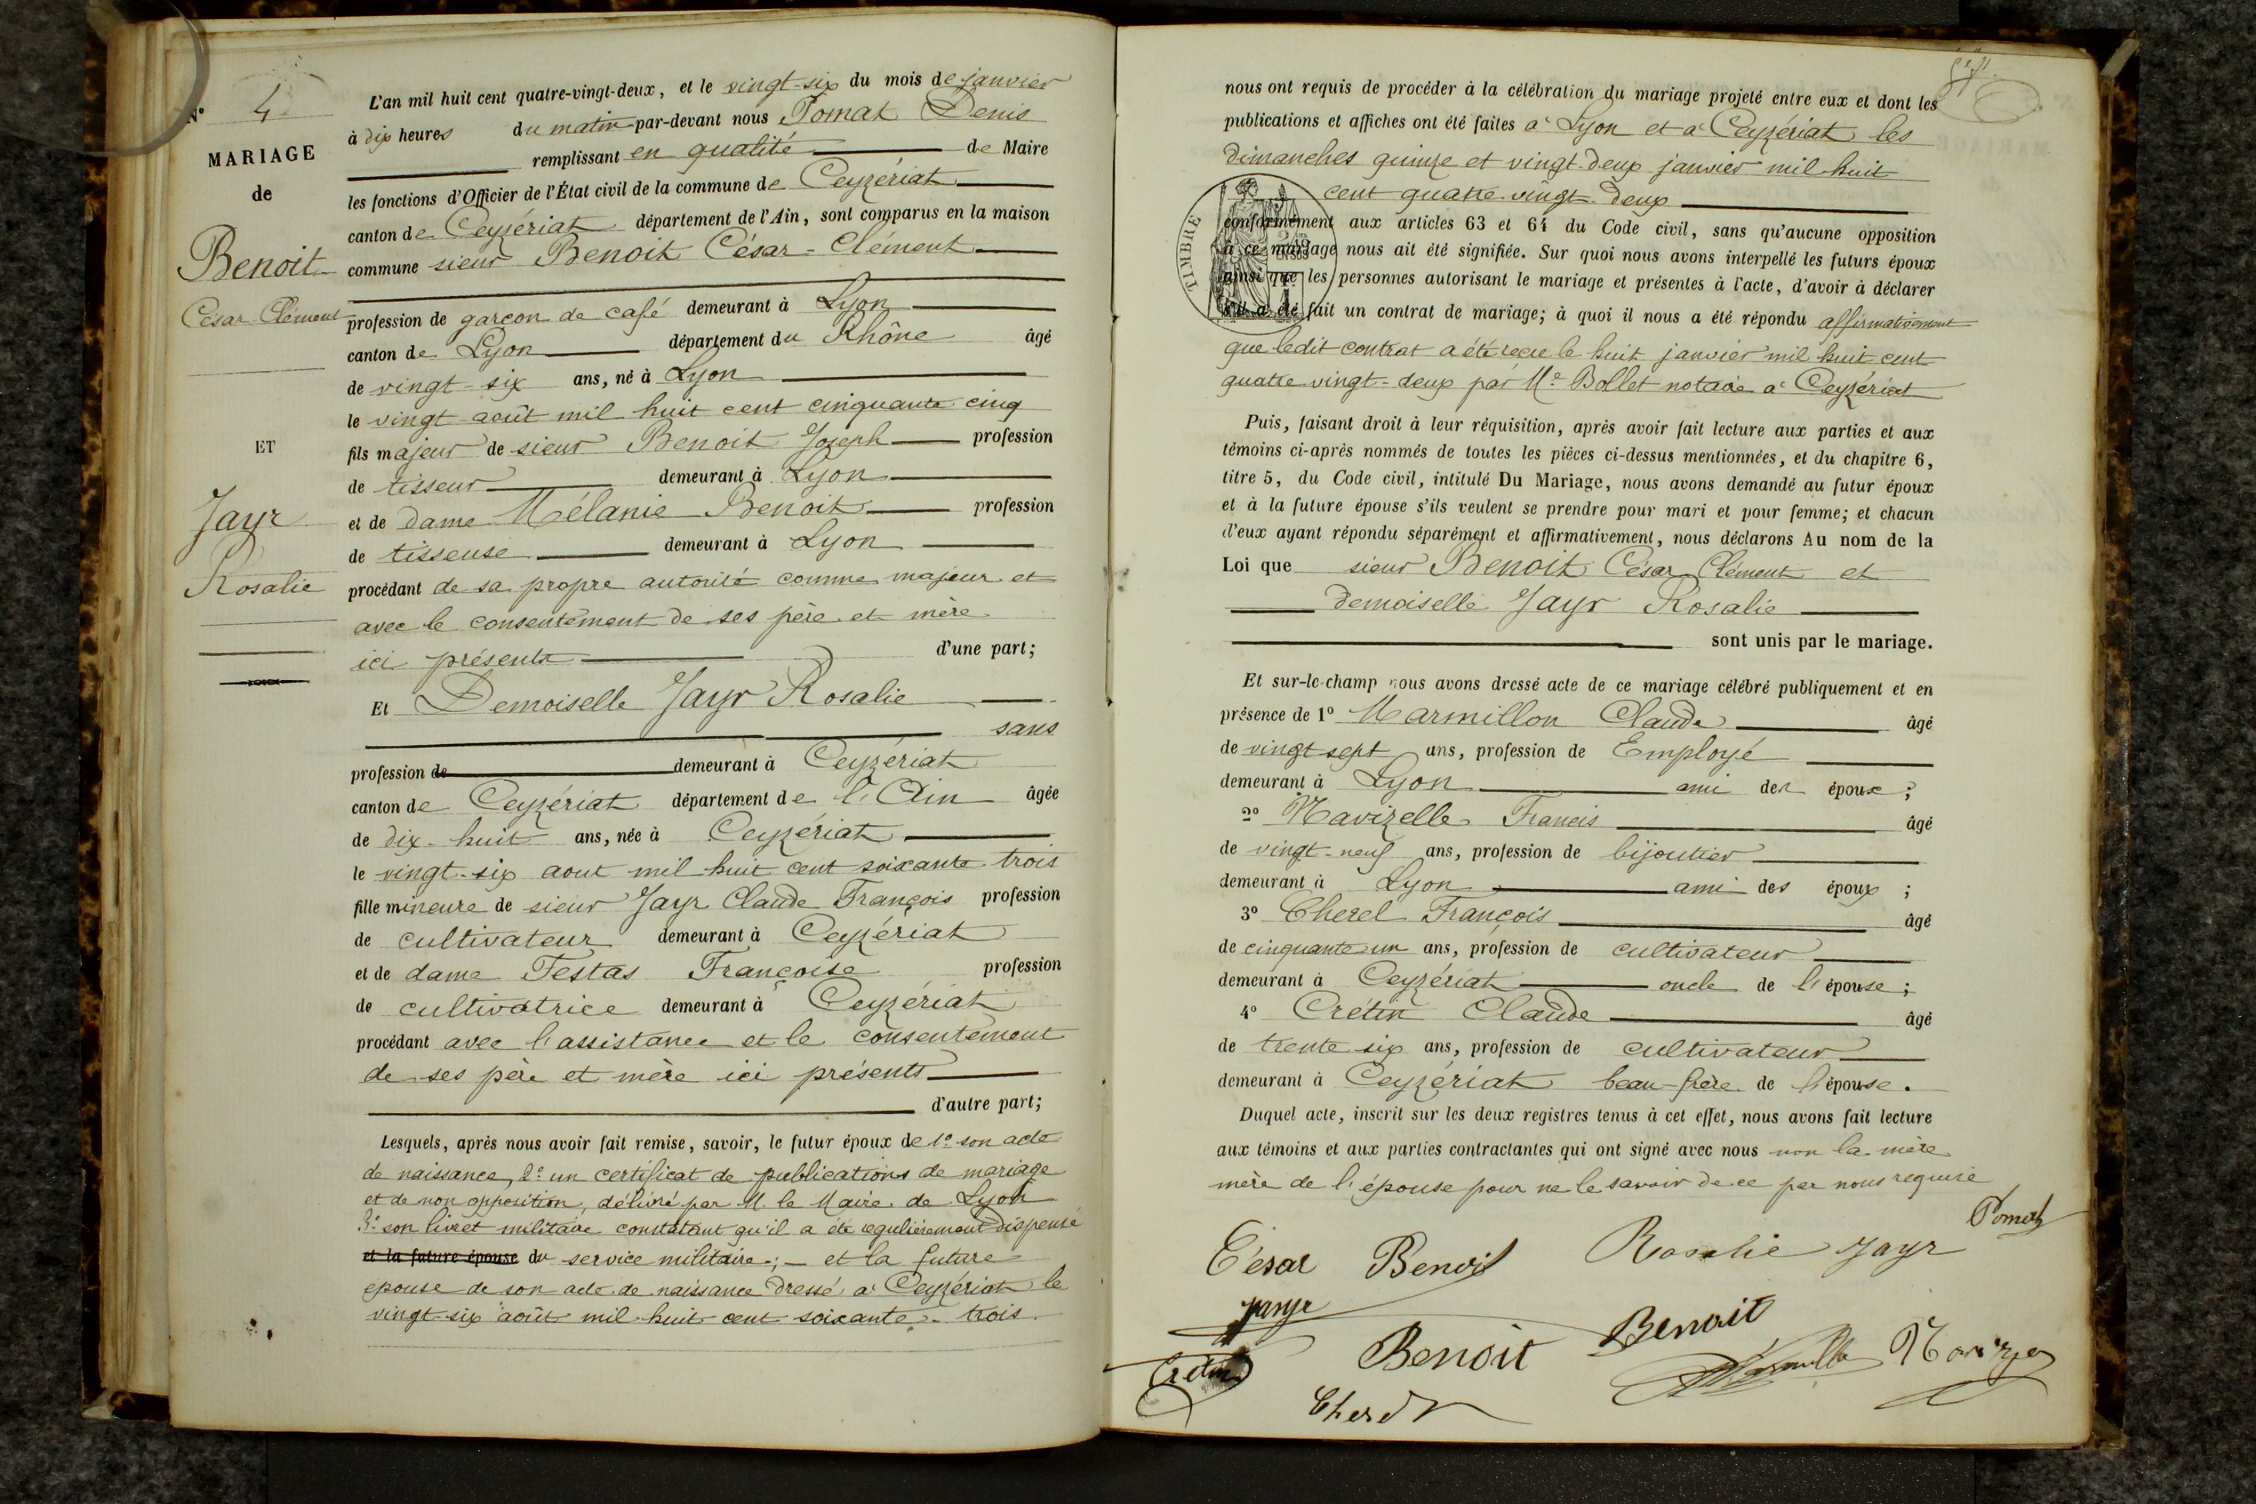 N° 4
MARIAGE
de
Benoit
César Clément
ET
Jayr
Rosalie
L'an mil huit cent quatre-vingt-deux, et le vingt-six du mois de janvier
à dix heures du matin par-devant nous Pomat Denis
remplissant en qualité de Maire
les fonctions d'Officier de l'État civil de la commune de Ceyzériat
canton de Ceyzériat département de l'Ain, sont comparus en la maison
commune sieur Benoit César-Clément
profession de garçon de café demeurant à Lyon
canton de Lyon département du Rhône âgé
de vingt-six ans, né à Lyon
le vingt août mil huit cent cinquante cinq
fils majeur de sieur Benoit Joseph profession
de tisseur demeurant à Lyon
et de dame Mélanie Benoit profession
de tisseuse demeurant à Lyon
procédant de sa propre autorité comme majeur et
avec le consentement de ses père et mère
ici présents d'une part;
Et Demoiselle Jayr Rosalie
sans
profession de demeurant à Ceyzériat
canton de Ceyzériat département de l'Ain âgée
de dix-huit ans, née à Ceyzériat
le vingt-six aout mil huit cent soixante trois
fille mineure de sieur Jayr Claude François profession
de cultivateur demeurant à Ceyzériat
et de dame Testas Françoise profession
de cultivatrice demeurant à Ceyzériat
procédant avec l'assistance et le consentement
de ses père et mère ici présents
d'autre part;
Lesquels, après nous avoir fait remise, savoir, le futur époux de 1° son acte
de naissance, 2° un certificat de publications de mariage
et de non opposition, délivré par M. le Maire de Lyon
3° son livret militaire constatant qu'il a été régulièrement dispensé
et la future épouse du service militaire; — et la future
épouse de son acte de naissance dressé à Ceyzériat le
vingt-six août mil huit cent soixante-trois
nous ont requis de procéder à la célébration du mariage projeté entre eux et dont les
publications et affiches ont été faites à Lyon et à Ceyzériat les
dimanches quinze et vingt deux janvier mil huit
cent quatre-vingt-deux
TIMBRE
conformément aux articles 63 et 64 du Code civil, sans qu'aucune opposition
à ce mariage nous ait été signifiée. Sur quoi nous avons interpellé les futurs époux
ainsi que les personnes autorisant le mariage et présentes à l'acte, d'avoir à déclarer
s'il a été fait un contrat de mariage; à quoi il nous a été répondu affirmativement
que ledit contrat a été reçu le huit janvier mil huit cent
quatre vingt-deux par Me Bollet notaire à Ceyzériat
Puis, faisant droit à leur réquisition, après avoir fait lecture aux parties et aux
témoins ci-après nommés de toutes les pièces ci-dessus mentionnées, et du chapitre 6,
titre 5, du Code civil, intitulé Du Mariage, nous avons demandé au futur époux
et à la future épouse s'ils veulent se prendre pour mari et pour femme; et chacun
d'eux ayant répondu séparément et affirmativement, nous déclarons Au nom de la
Loi que sieur Benoit César Clément et
Demoiselle Jayr Rosalie
sont unis par le mariage.
Et sur-le-champ nous avons dressé acte de ce mariage célébré publiquement et en
présence de 1° Marmillon Claude âgé
de vingt sept ans, profession de Employé
demeurant à Lyon ami des époux;
2° Navizelle Francis âgé
de vingt-neuf ans, profession de bijoutier
demeurant à Lyon ami des époux;
3° Cherel François âgé
de cinquante un ans, profession de cultivateur
demeurant à Ceyzériat oncle de l'épouse;
4° Crétin Claude âgé
de trente six ans, profession de cultivateur
demeurant à Ceyzériat beau-frère de l'épouse.
Duquel acte, inscrit sur les deux registres tenus à cet effet, nous avons fait lecture
aux témoins et aux parties contractantes qui ont signé avec nous non la mère
mère de l'épouse pour ne le savoir de ce par nous requise
Pomat
César Benoit Rosalie Jayr
jayr
Benoit Benoit
Crétin
Cherel